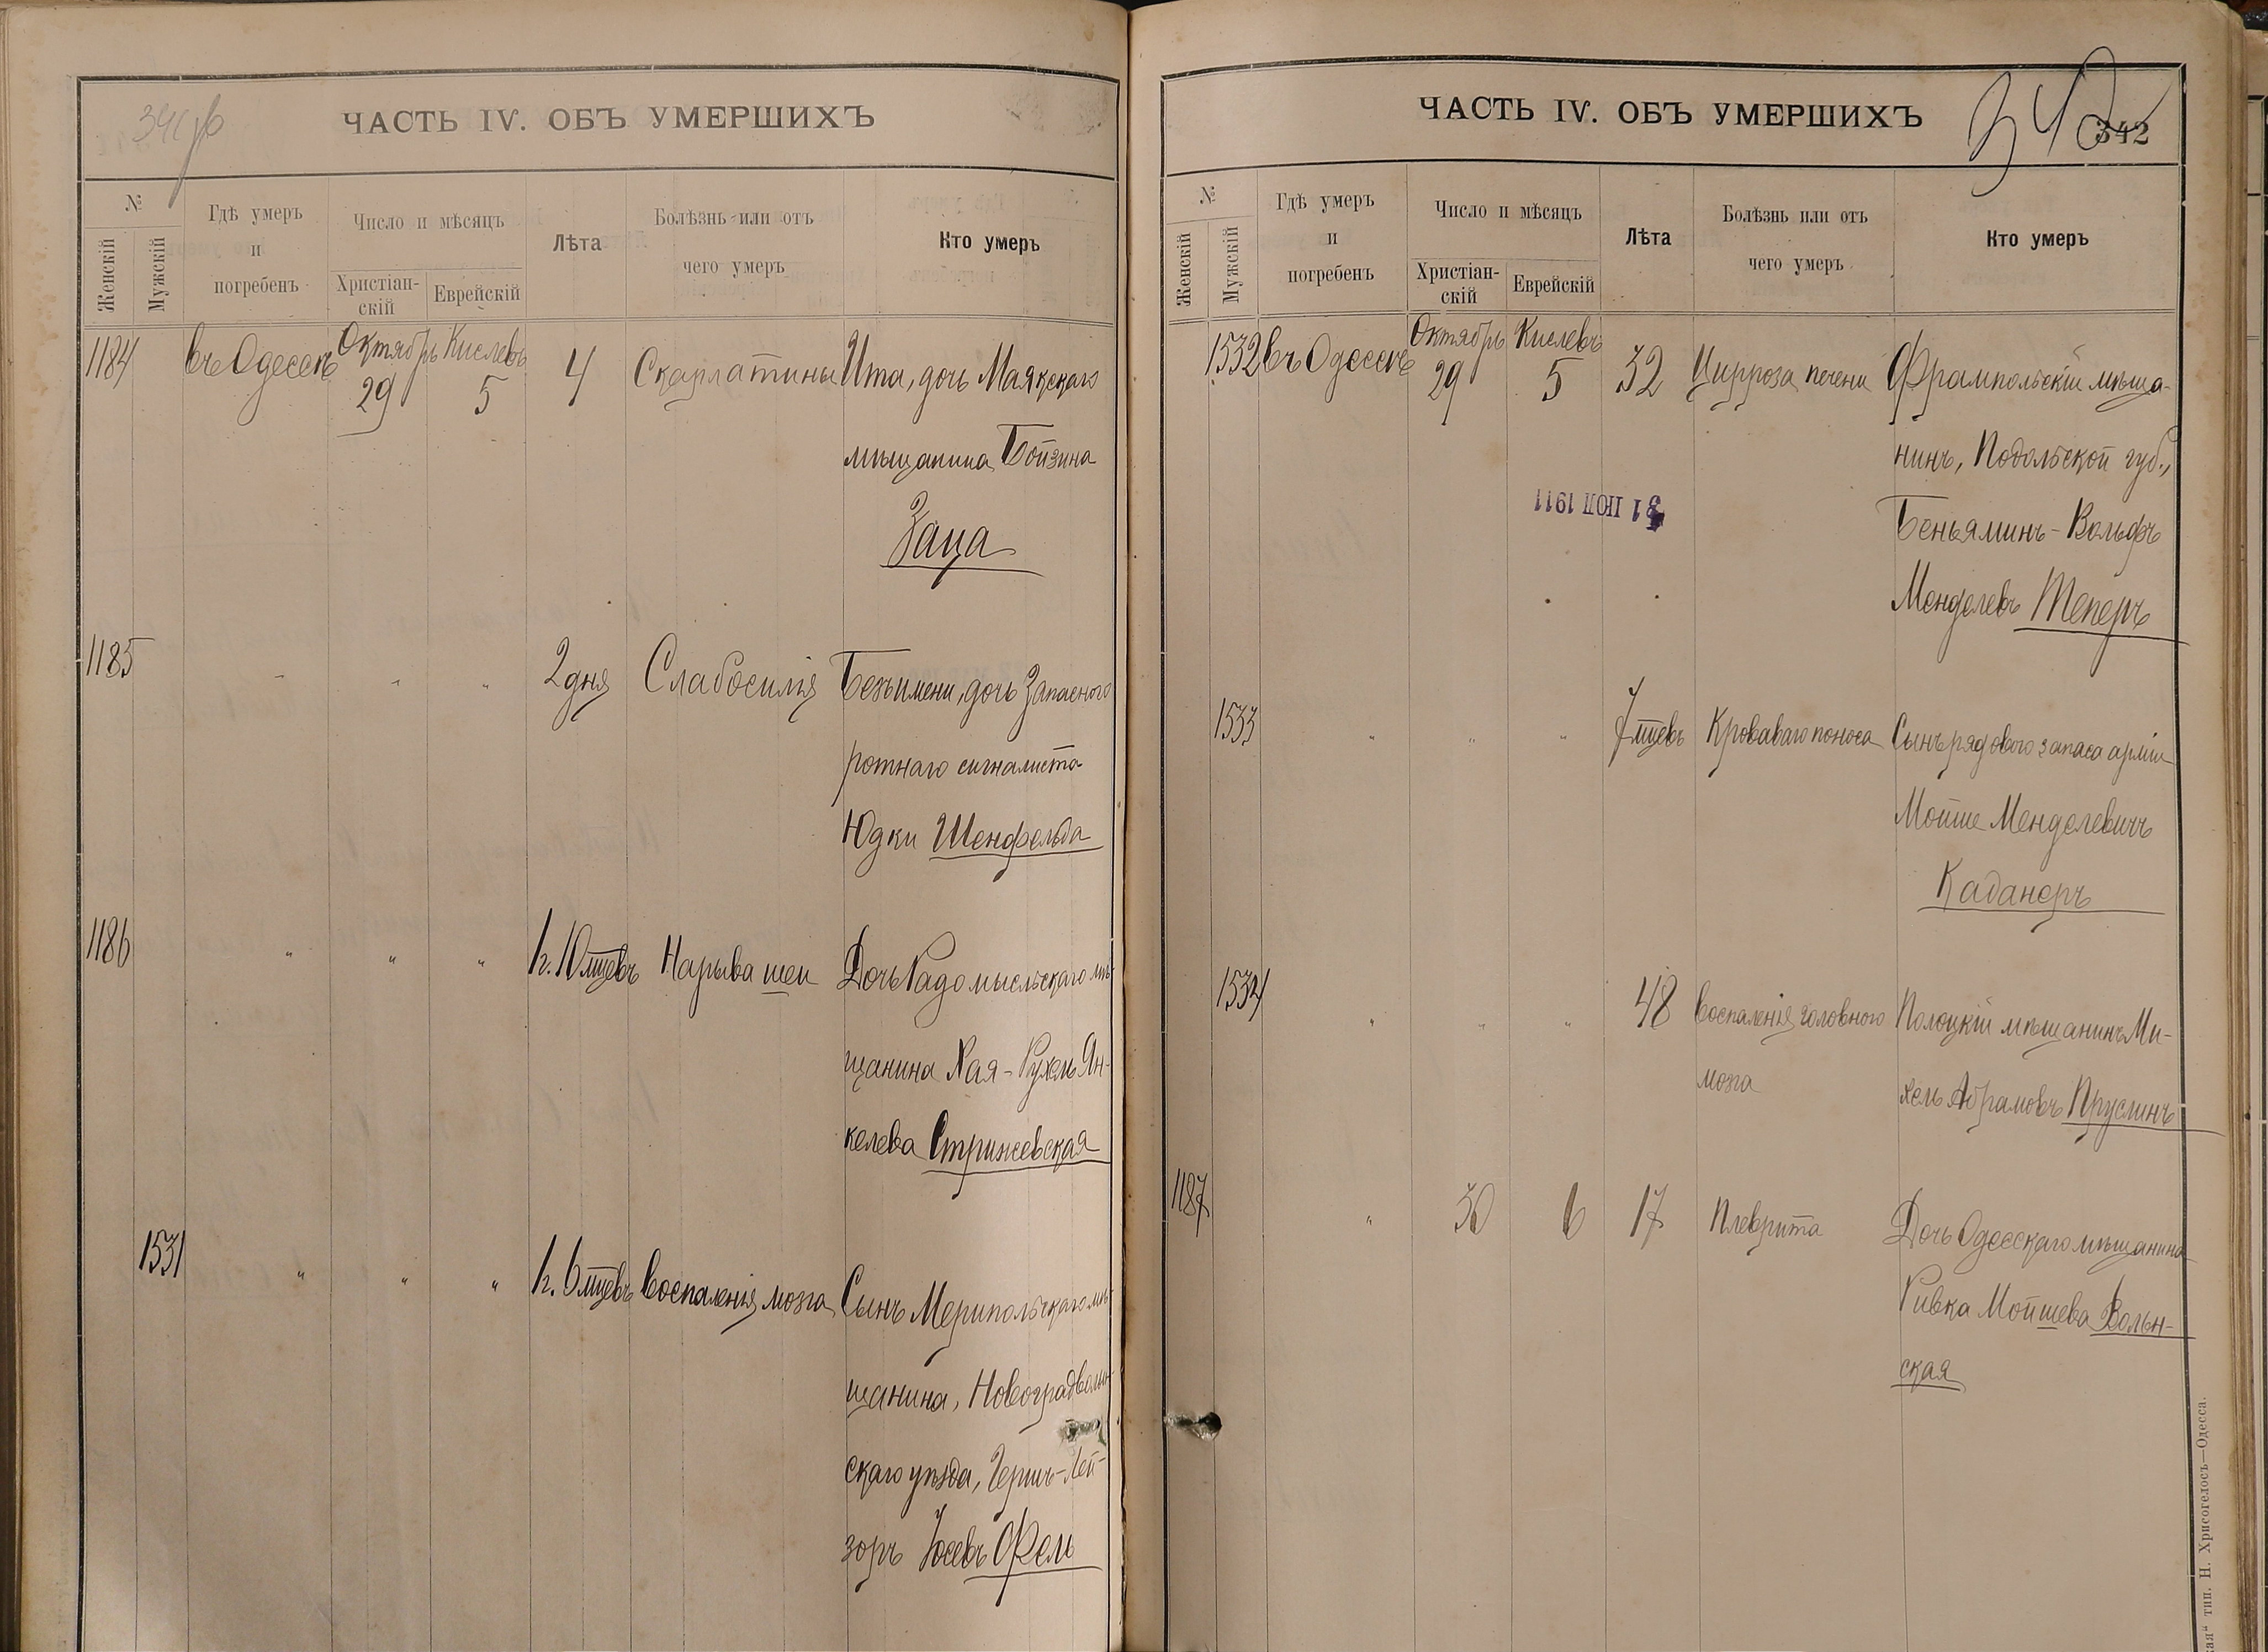 ЧАСТЬ IV. ОБЪ УМЕРШИХЪ
№
Женскій
Мужскій
Гдѣ умеръ
и
погребенъ
Число и мѣсяцъ
Христіан-
скій
Еврейскій
Лѣта
Болѣзнь или отъ
чего умеръ
Кто умеръ
1184 въ Одессѣ Октябрь 29 Кислевъ 5 4 Скарлатины Ита, дочь Маякскаго
мѣщанина Бойзина
Заца
1185 " " " 2 дня Слабосилія Безъимени, дочь Запасного
ротнаго сигналиста
Юдки Шенфельда
1186 " " " 1 г. 10 мцевъ Нарыва шеи Дочь Радомысльскаго мѣ-
щанина Хая-Рухель Ян-
келева Стрижевская
1531 " " " 1 г. 6 мцевъ Воспаленія мозга Сынъ мѣ-
щанина, Новоградволын-
скаго уѣзда, Гершъ-Лей-
зоръ Іосевъ Фель
ЧАСТЬ IV. ОБЪ УМЕРШИХЪ
342
342
№
Женскій
Мужскій
Гдѣ умеръ
и
погребенъ
Число и мѣсяцъ
Христіан-
скій
Еврейскій
Лѣта
Болѣзнь или отъ
чего умеръ
Кто умеръ
1532 въ Одессѣ Октябрь 29 Кислевъ 5 32 Цирроза печени Фрампольскій мѣща-
нинъ, Подольской губ.,
Беньяминъ-Вольфъ
Менделевъ Теперъ
31 ІЮЛ 1911
1533 " " " 7 мцевъ Кроваваго поноса Сынъ рядового запаса арміи
Мойше Менделевичъ
Каданеръ
1534 " " " 48 Воспаленія головного Полоцкій мѣщанинъ Ми-
мозга хель Абрамовъ Пруслинъ
1187 " 30 6 17 Плеврита Дочь Одесскаго мѣщанина
Ривка Мойшева Вольн-
ская
тип. Н. Хрисогелосъ—Одесса.